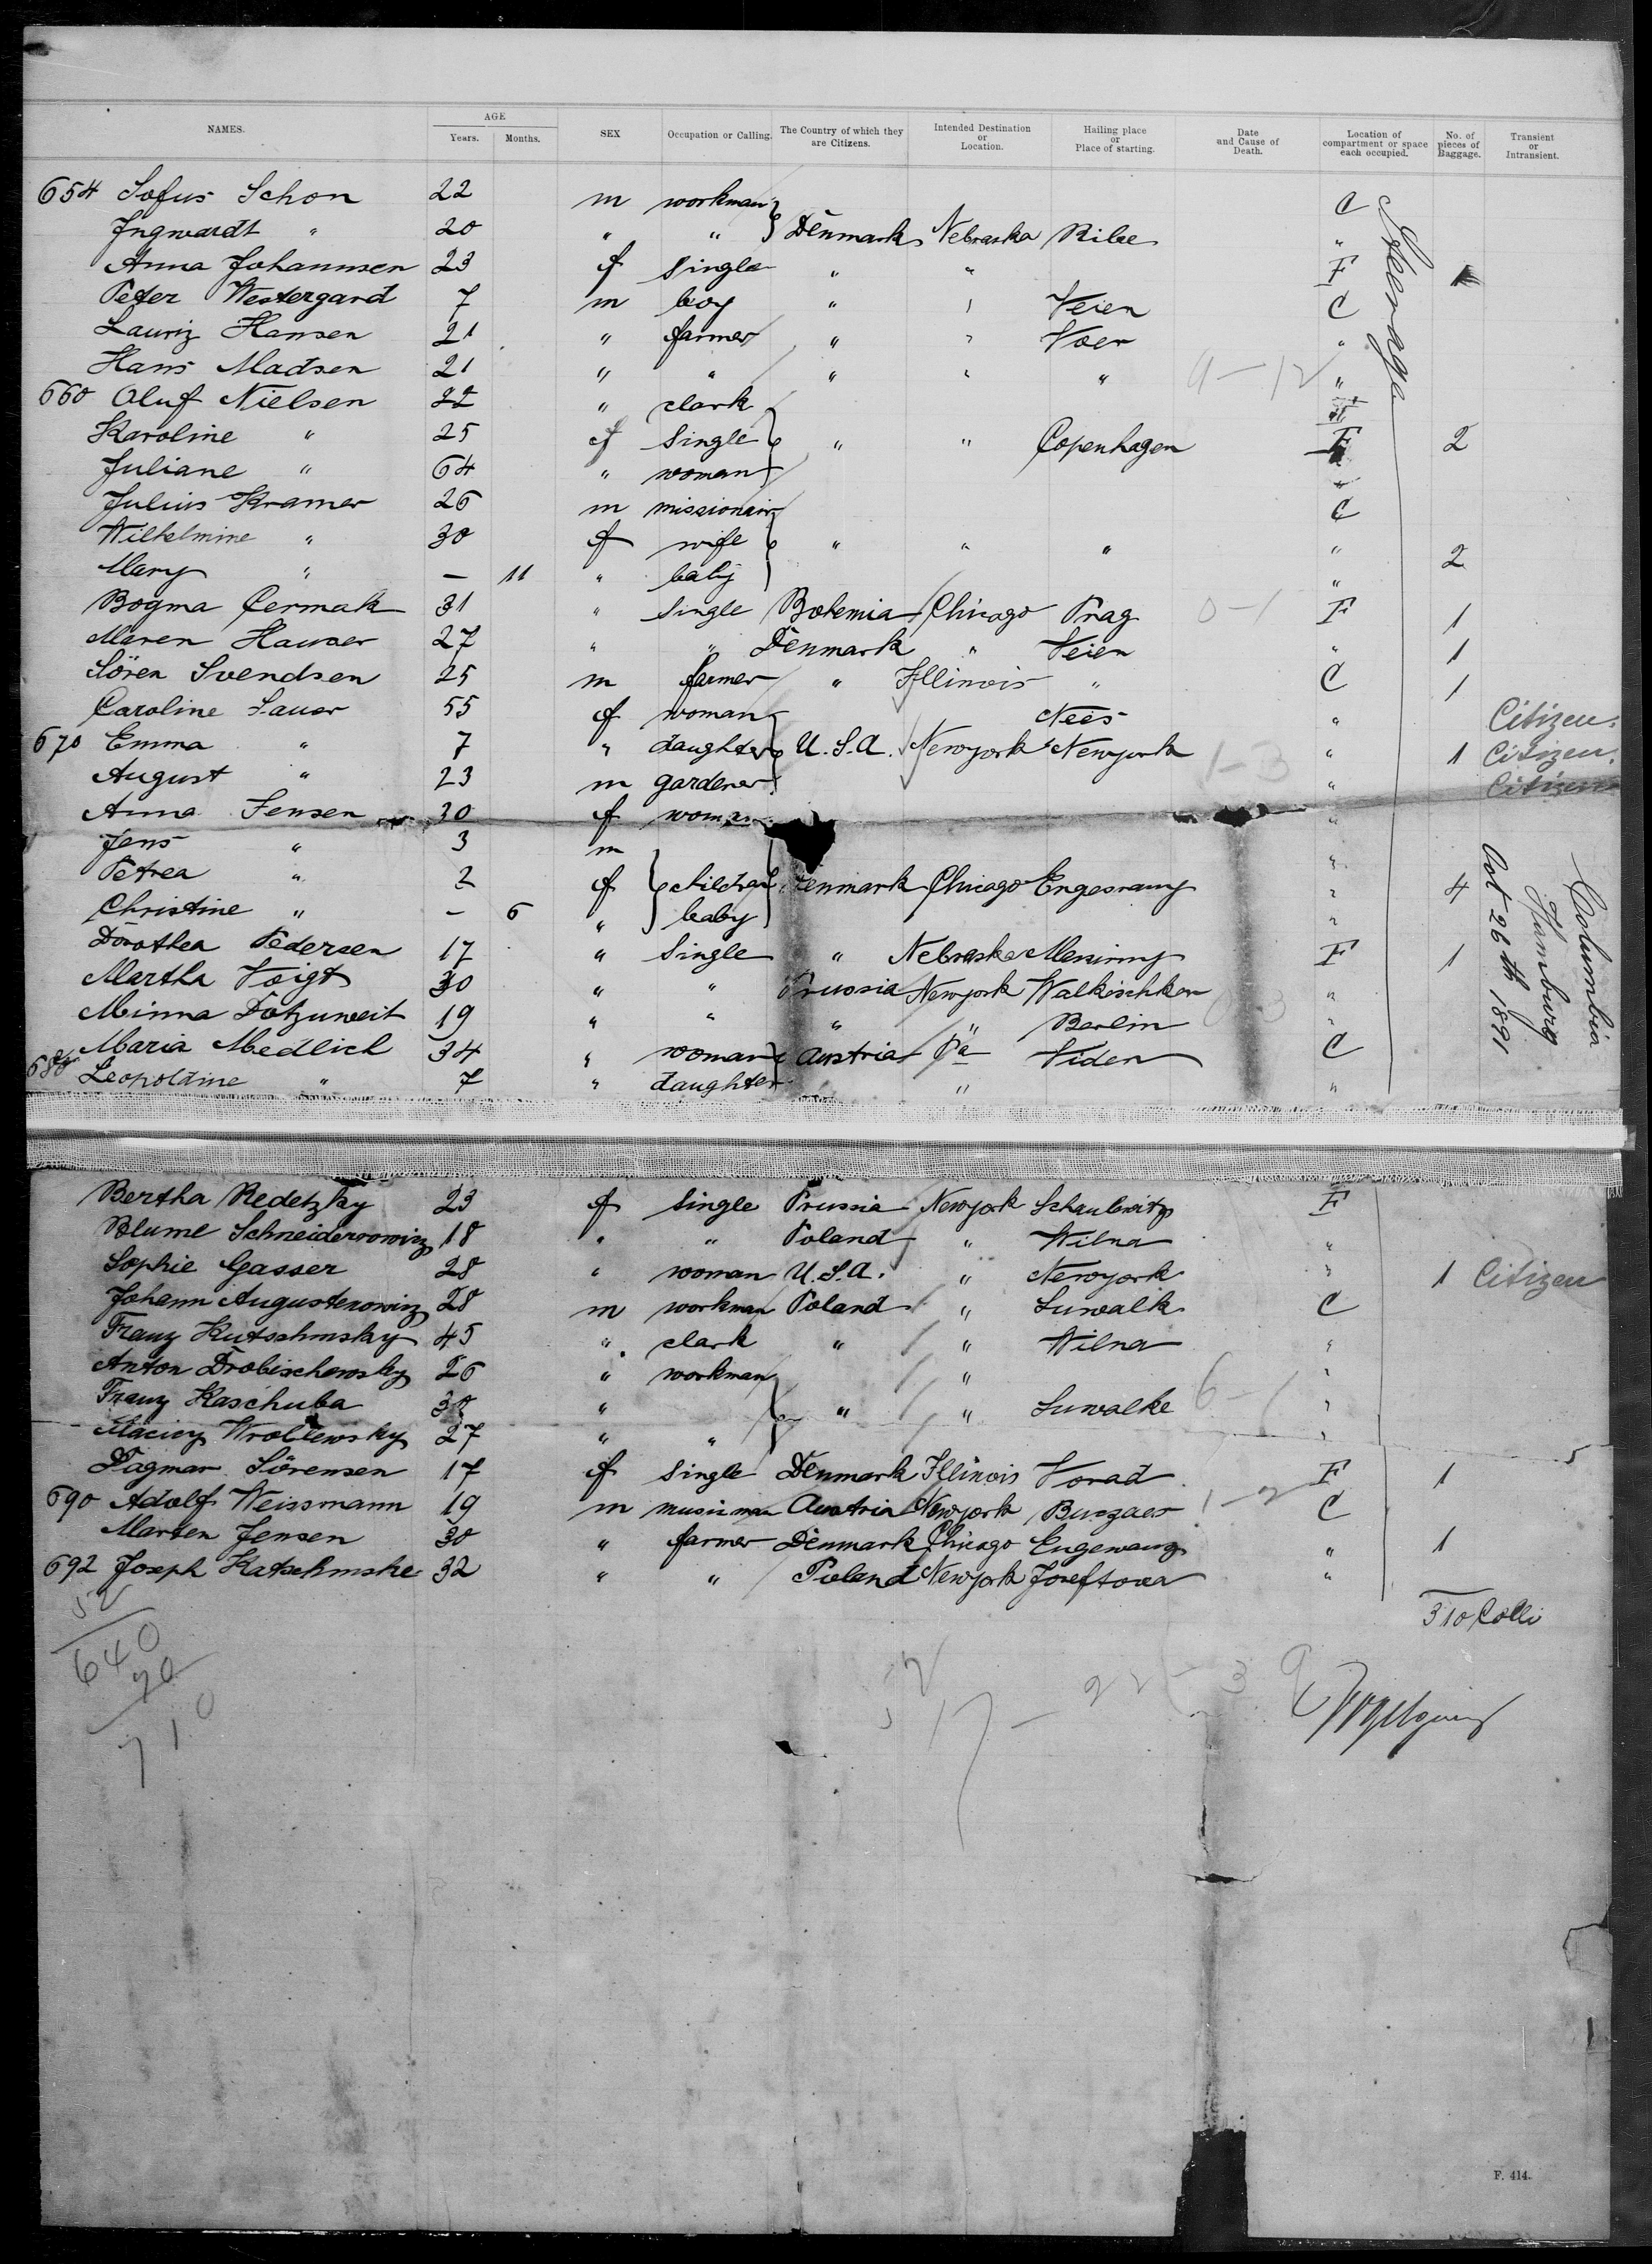 NAMES. AGE Years. Months. SEX Occupation or Calling. The Country of which they are Citizens. Intended Destination or Location. Hailing place or Place of starting. Date and Cause of Death. Location of compartment or space each occupied. No. of pieces of Baggage. Transient or Intransient.
654 Sofus Schon 22 m workman C
Ingwardt " 20 " " Denmark Nebraska Ribe "
Anna Johannsen 23 f single " " F
Peter Westergard 7 m boy " " Veien C
Lauriz Hansen 21 " farmer " " Voer "
Hans Madsen 21 " " " " " 9-12 "
660 Oluf Nielsen 22 " clark
Karoline " 25 f single " " Copenhagen F 2
Juliane " 64 " woman "
Julius Kramer 26 m missionair C
Wilhelmine " 30 f wife " " " " 2
Mary " – 11 " baby "
Bogma Cermak 31 " single Bohemia Chicago Prag 0-1 F 1
Maren Hauser 27 " " Denmark " Veien " 1
Sören Svendsen 25 m farmer " Illinois " C 1
Caroline Sauer 55 f woman " Citizen.
670 Emma " 7 " daughter U.S.A. Newyork Newyork 1-3 " 1 Citizen.
August " 23 m gardener " Citizen
Anna Jensen 30 f woman "
Jens " 3 m "
Petrea " 2 f children Denmark Chicago " 4
Christine " – 6 " baby "
Dorothea Pedersen 17 " single " Nebraska F 1
Martha Voigt 30 " " Prussia Newyork Walkischken "
Minna Dotzuweit 19 " " " " Berlin "
Maria Medlich 34 " woman Austria Pa Viden C
680 Leopoldine " 7 " daughter " "
Steerage
Columbia
Hamburg
Oct 26th 1891
Bertha Redetzky 23 f single Prussia Newyork F
Blume Schneiderowirz 18 " " Poland " Wilna "
Sophie Gasser 28 " woman U.S.A. " Newyork " 1 Citizen
Johann Augusterowirz 28 m workman Poland " Suwalk C
Franz Kutschmsky 45 " clark " " Wilna "
Anton Drobischewsky 26 " workman " "
Franz Kaschuba 38 " " " Suwalke 6-1 "
Maciey Wroblewsky 27 " " "
Dagmar Sörensen 17 f single Denmark Illinois Vorad F 1
690 Adolf Weissmann 19 m musicman Austria Newyork 1-2 C
Marten Jensen 30 " farmer Denmark Chicago Engewang " 1
692 Joseph Katschmske 32 " " Poland Newyork Joseftowa "
310 Colli
52
640
70
710
52
17 – 22 – 3 9
F. 414.